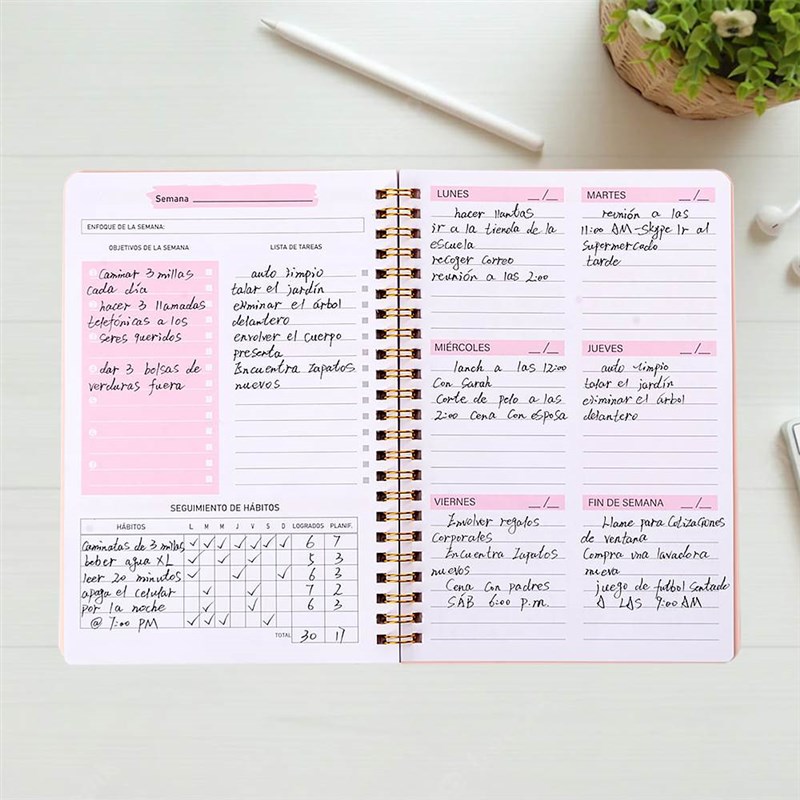 Semana
ENFOQUE DE LA SEMANA:
OBJETIVOS DE LA SEMANA
Caminar 3 millas
cada día
hacer 3 llamadas
telefónicas a los
seres queridos
dar 3 bolsas de
verduras fuera
LISTA DE TAREAS
auto limpio
talar el jardín
eliminar el árbol
delantero
envolver el cuerpo
presenta
Encuentra Zapatos
nuevos
SEGUIMIENTO DE HÁBITOS
HÁBITOS L M M J V S D LOGRADOS PLANIF.
Caminatas de 3 millas ✓ ✓ ✓ ✓ ✓ ✓ ✓ 6 7
beber agua XL ✓ ✓ ✓ 5 3
leer 20 minutos ✓ ✓ ✓ 6 3
apaga el celular ✓ ✓ 7 2
por la noche ✓ ✓ 6 3
@ 7:00 PM ✓ ✓ ✓ ✓
TOTAL 30 17
LUNES __/__
hacer llantas
ir a la tienda de la
escuela
recoger correo
reunión a las 2:00
MARTES __/__
reunión a las
11:00 AM -Skype Ir al
supermercado
tarde
MIÉRCOLES __/__
lanch a las 12:00
con Sarah
Corte de pelo a las
2:00 Cena Con esposa
JUEVES __/__
auto limpio
talar el jardín
eliminar el árbol
delantero
VIERNES __/__
Envolver regalos
corporales
Encuentra Zapatos
nuevos
Cena con padres
SÁB 6:00 p.m.
FIN DE SEMANA __/__
Llame para Cotizaciones
de ventana
Compra una lavadora
nueva
juego de futbol Sentado
A LAS 9:00 AM